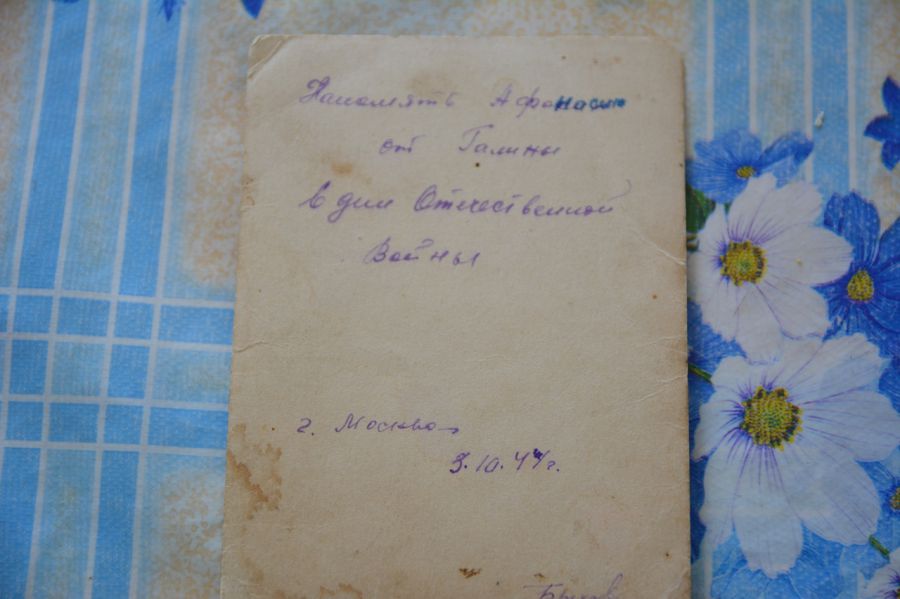 Напомять Афонасию
от Галины
в дни Отечественной
Войны
г. Москва
3.10.44г.